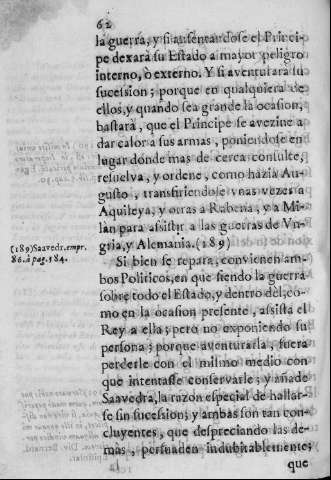 62
la guerra, y si ausentandose el Princi-
pe dexarà su Estado a mayor peligro
interno, ò externo. Y si aventurara su
sucesion; porque en qualquiera de
ellos, y quando sea grande la ocasion,
bastarà, que el Principe se avezine a
dar calor a sus armas, poniendose en
lugar donde mas de cerca consulte,
resuelva, y ordene, como hazia Au-
gusto, transfiriendose vnas vezes a
Aquileya, y otras a Rabena, y a Mi-
lan para assistir a las guerras de Vn-
gria, y Alemania. (189)
(189) Saavedr. empr.
86. à pag. 584.
Si bien se repara, convienen am-
bos Politicos, en que siendo la guerra
sobre todo el Estado, y dentro del, co-
mo en la ocasion presente, assista el
Rey a ella; pero no exponiendo su
persona; porque aventurarla, fuera
perderle con el mismo medio con
que intentasse conservarle; y añade
Saavedra, la razon especial de hallar-
se sin sucession; y ambas son tan con-
cluyentes, que despreciando las de-
màs, persuaden indubitablemente;
que